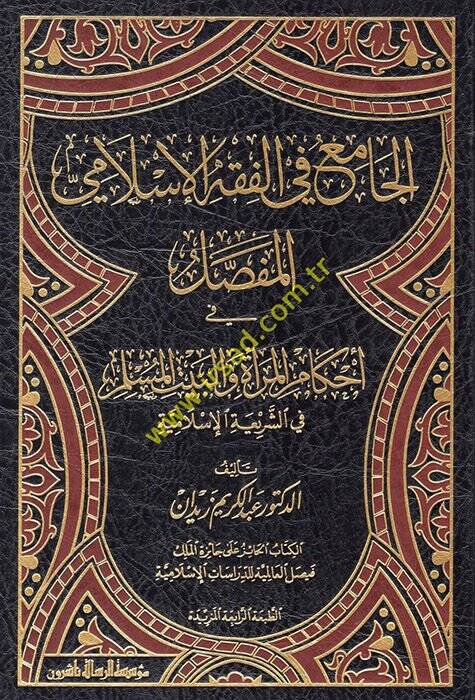 الجامع في الفقه الإسلامي
المفصل
في
أحكام المرأة والبيت المسلم
في الشريعة الإسلامية
تأليف
الدكتور عبد الكريم زيدان
الكتاب الحائز على جائزة الملك
فيصل العالمية للدراسات الإسلامية
الطبعة الرابعة المزيدة
مؤسسة الرسالة ناشرون
www.usad.com.tr